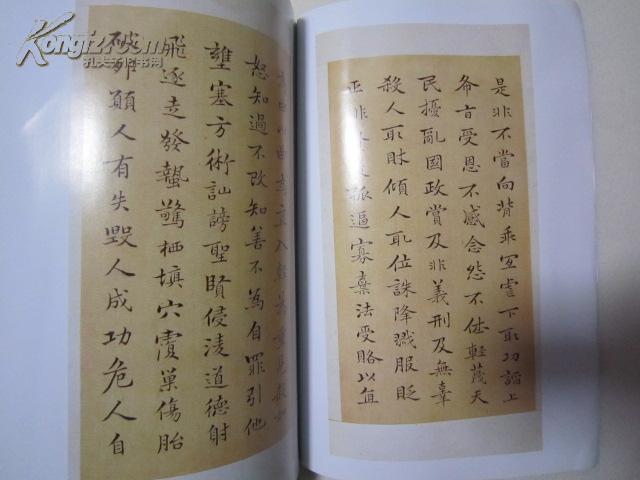 是非不當向背乖宜虐下取功諂上
希旨受恩不感念怨不休輕蔑天
民擾亂國政賞及非義刑及無辜
殺人取財傾人取位誅降戮服貶
正非孤逼寡棄法受賂以直
曲為直入輕為重見殺加
怒知過不改知善不為自罪引他
壅塞方術訕謗聖賢侵淩道德射
飛逐走發蟄驚栖填穴覆巢傷胎
破卵願人有失毀人成功危人自
Kongfz.com
孔夫子旧书网